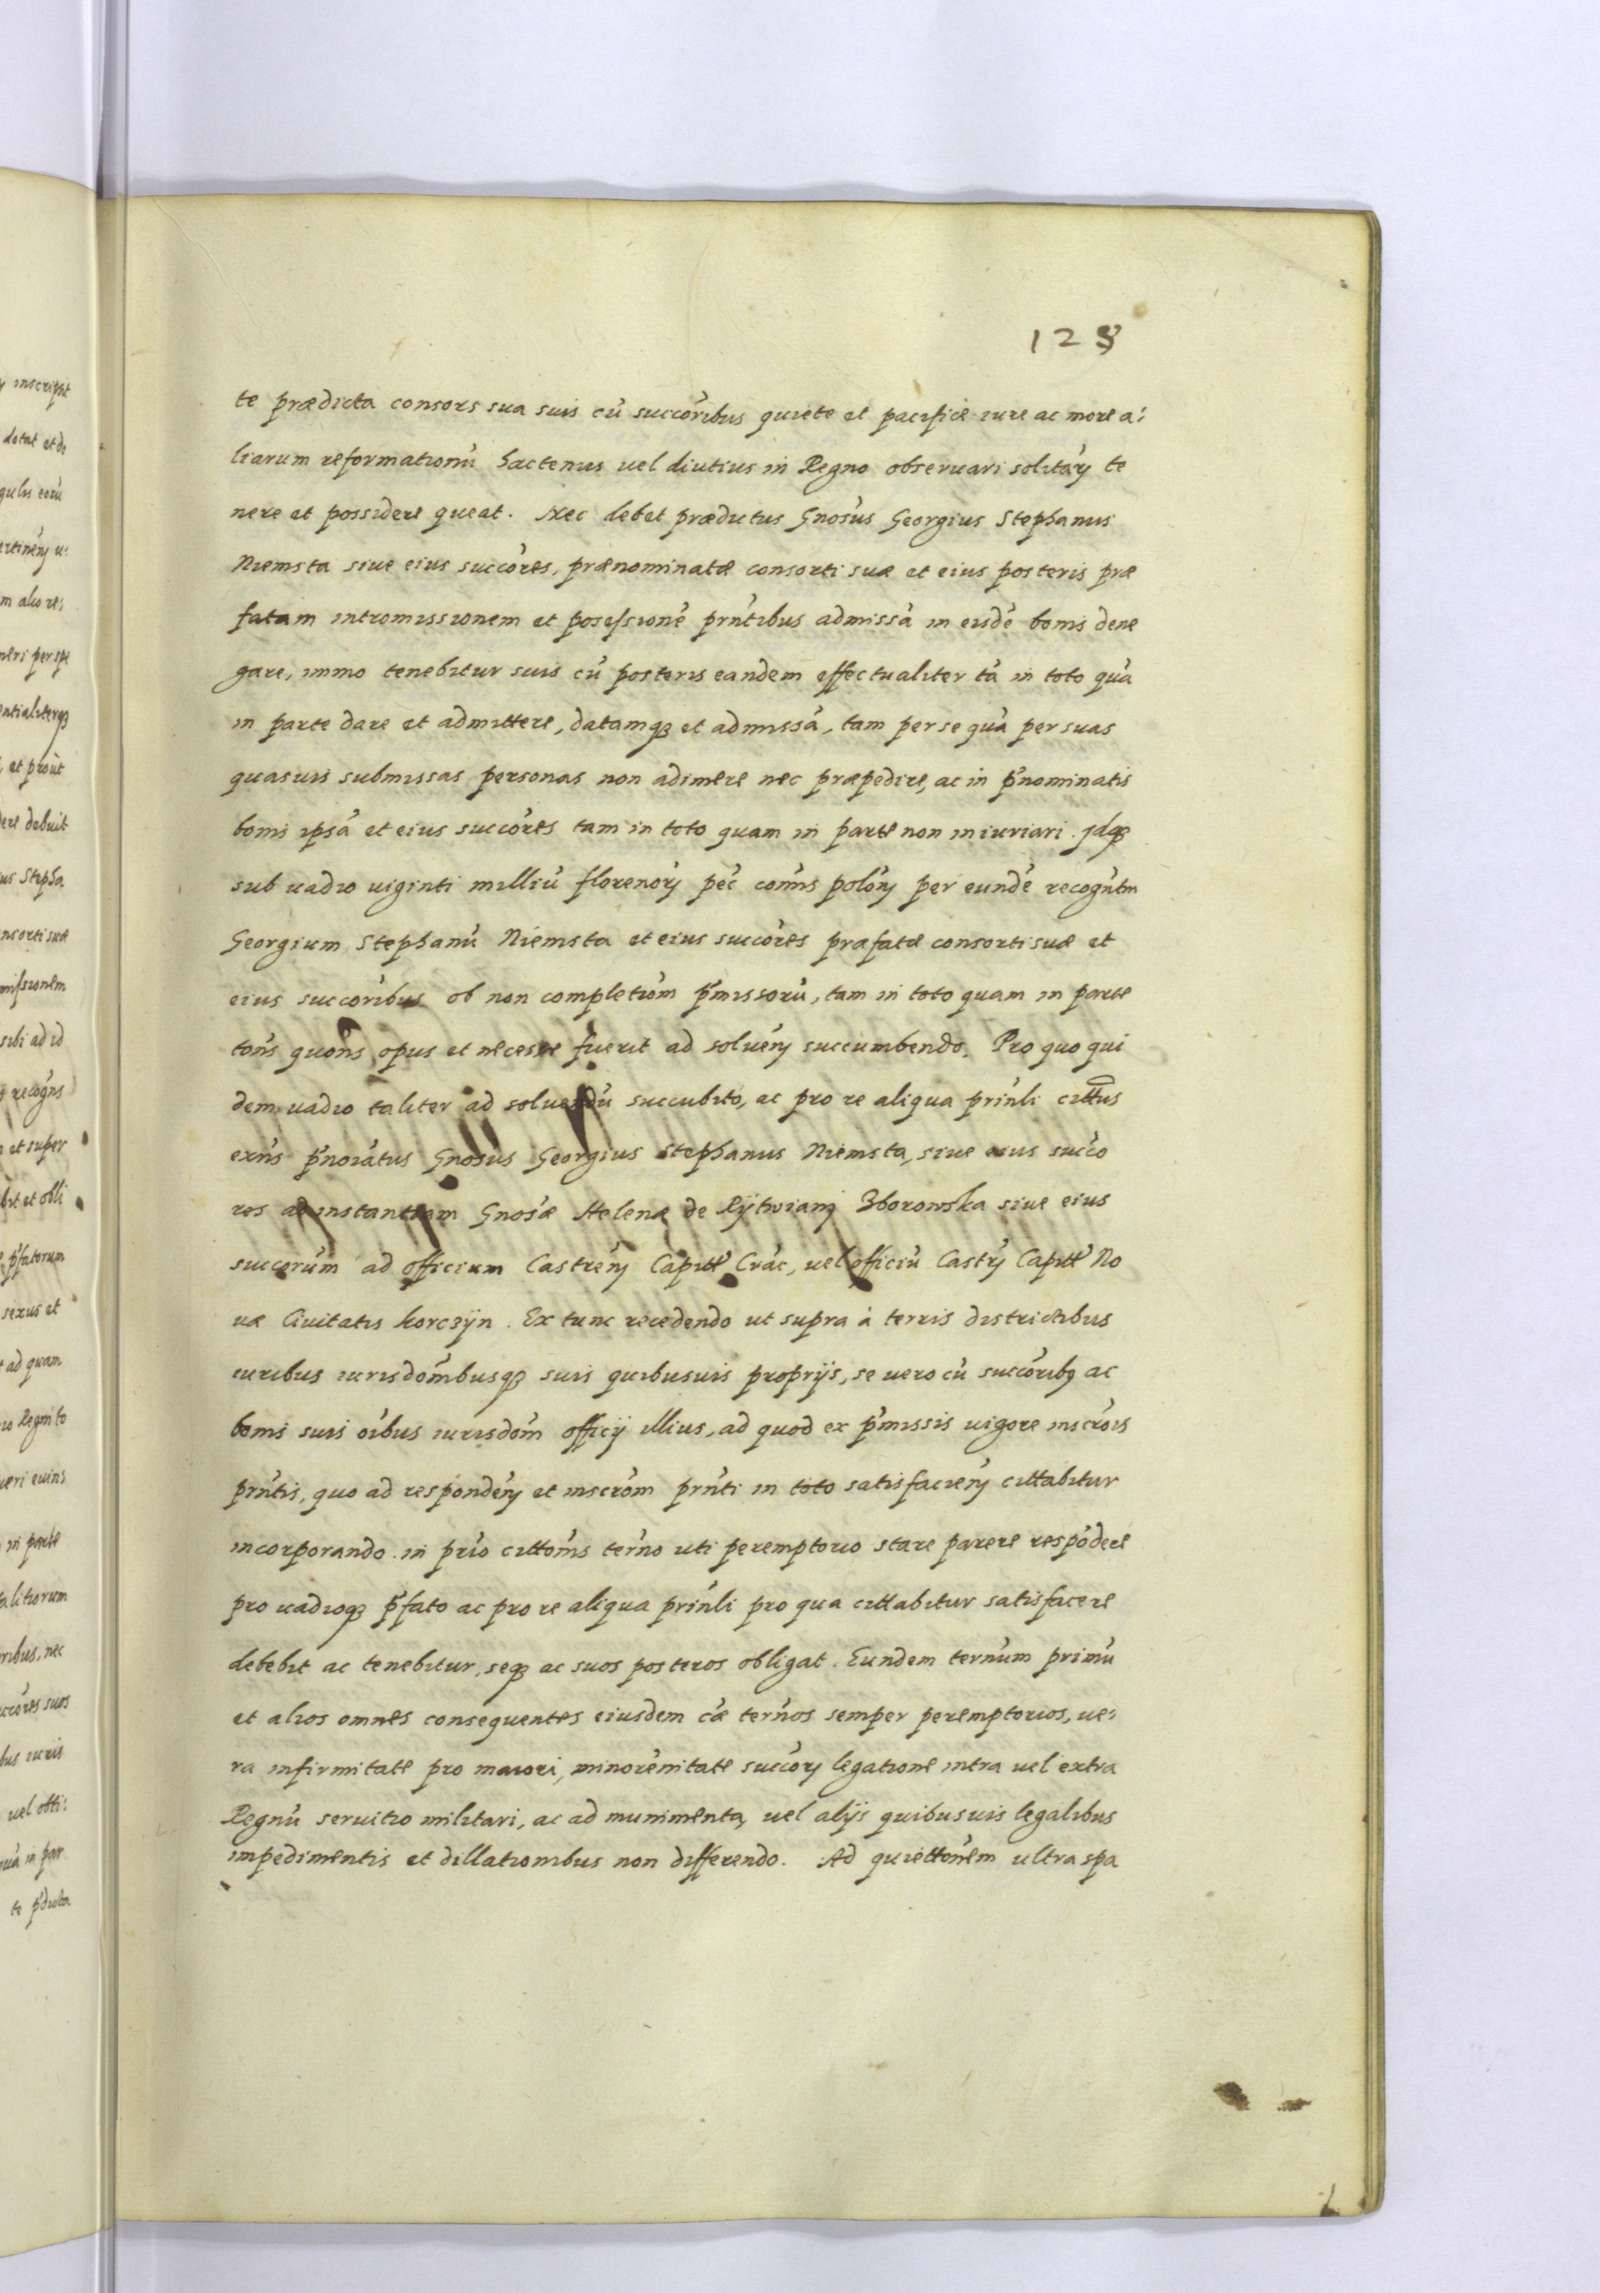 123
te prædicta consors sua suis cũ succoribus quiete et pacifice iure ac more a:
liarum reformationũ hactenus vel diutius in Regno obseruari solitary te
nere et possidere queat. Nec debet prædictus Gnosus Georgius Stephanus
Niemsta siue eius succores, prænominatæ consorti suæ et eius posteris præ
fatam intromissionem et possessionẽ prñtibus admissã in eisdẽ bonis dene
gare, immo tenebitur suis cũ posteris eandem effectualiter tã in toto quã
in parte dare et admittere, datamqz et admissã, tam per se quã per suas
quasuis submissas personas non adimere nec præpedire, ac in p̃nominatis
bonis ipsã et eius succores tam in toto quam in parte non iniuriari. Idqz
sub uadio uiginti milliũ florenory pec̃ com̃is polony per eundẽ recogntm
Georgium Stephanũ Niemsta et eius succores præfatæ consorti suæ et
eius succoribus ob non completiom p̃missorũ, tam in toto quam in parte
tons quons opus et necesse fuerit ad soluen̄y succumbendo. Pro quo qui
dem uadio taliter ad soluendũ succubito, ac pro re aliqua prinli cittus
exns p̃noiatus Gnosus Georgius Stephanus Niemsta, siue eius succo
res ad instantiam Gnosæ Helenæ de Rijtwianj Zborowska siue eius
succorum ad officium Castreny Capitt Crac, uel officiũ Castry Capitt No
uæ Ciuitatis korczyn. Ex tunc recedendo ut supra à terris districtibus
iuribus iurisdombusqz suis quibusuis proprijs, se uero cũ succoribg ac
bonis suis oibus iurisdom officij illius, ad quod ex p̃missis uigore inscrois
prntis, quo ad respondeny et inscrom prnti in toto satisfacieny cittabitur
incorporando. in prio cittonis terno uti peremptorio stare parere respõdere
pro uadioqz p̃fato ac pro re aliqua prinli pro qua cittabitur satisfacere
debebit ac tenebitur, seqz ac suos posteros obligat. Eundem ternum primũ
et alios omnes consequentes eiusdem cæ ternos semper peremptorios, ue:
ra infirmitate pro maiori, minorenitate succory legatione intra uel extra
Regnũ seruitio militari, ac ad munimenta, uel alijs quibusuis legalibus
impedimentis et dillationibus non differendo. Ad quiettonem ultra spa